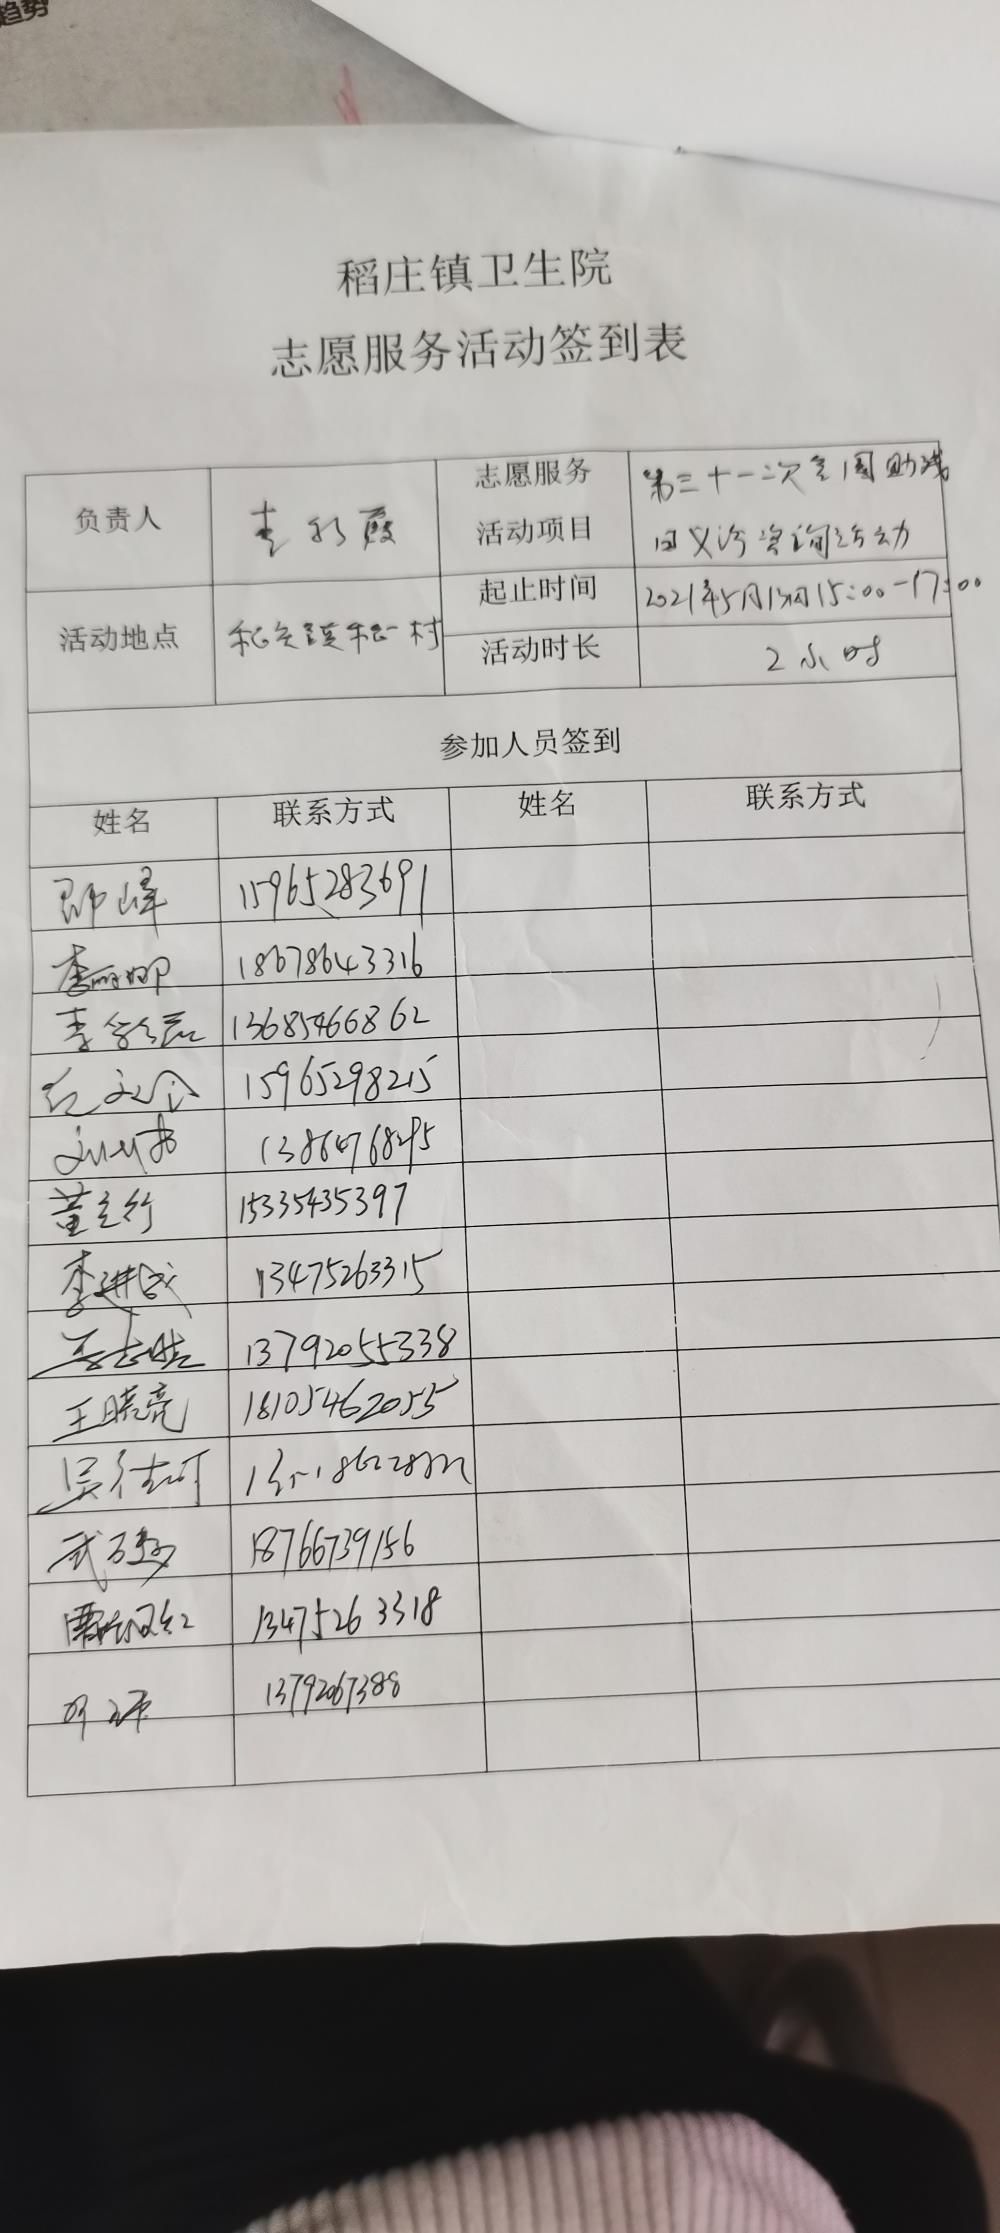 趋势
稻庄镇卫生院
志愿服务活动签到表
负责人
志愿服务
活动项目
第三十一次全国助残
日义诊咨询活动
活动地点
村
起止时间
2021年5月13日15:00-17:00
活动时长
2小时
参加人员签到
姓名 联系方式 姓名 联系方式
邵峰 15965283691
李丽娜 18678643316
李 13685466862
15965298215
刘 13864768295
董立行 15335435397
李进成 13475263315
13792055338
王晓亮 18105462055
吴
武 18766739156
红 13475263318
13792067388